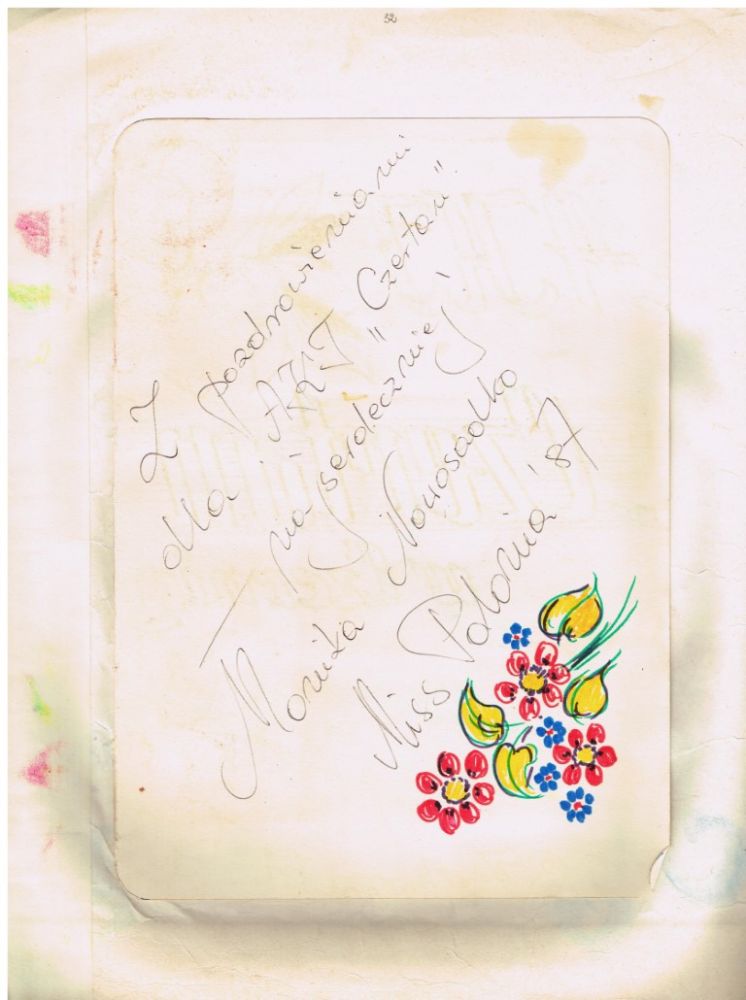 52
Z pozdrowieniami
dla AKT "Czartak".
najserdeczniej
Monika Nowosadko
Miss Polonia '87